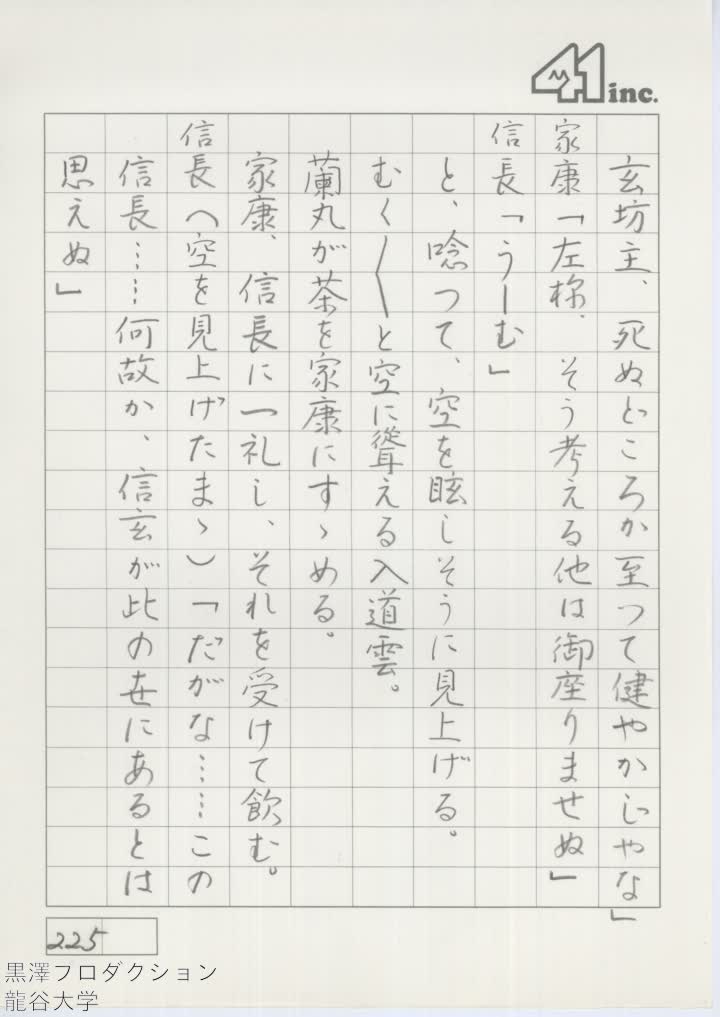 41 inc.
玄坊主、死ぬどころか至って健やかじゃな」
家康「左様、そう考える他は御座りませぬ」
信長「うーむ」
と、唸つて、空を眩しそうに見上げる。
むく〱と空に聳える入道雲。
蘭丸が茶を家康にすゝめる。
家康、信長に一礼し、それを受けて飲む。
信長（空を見上げたまゝ）「だがな……この
信長……何故か、信玄が此の世にあるとは
思えぬ」
225
黒澤プロダクション
龍谷大学